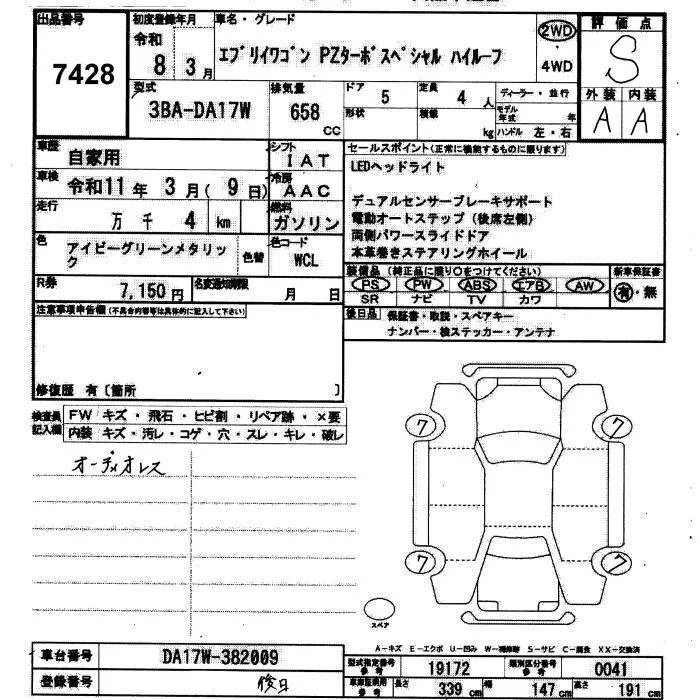 出品番号
7428
初度登録年月
令和
8 3月
車名・グレード
エブリイワゴン PZターボスペシャル ハイルーフ
2WD
・
4WD
評価点
S
外装 内装
A A
型式
3BA-DA17W
排気量
658
CC
ドア
5
定員
4 人
ディーラー・並行
形状
積載
kg
モデル年式 年
ハンドル 左・右
車歴
自家用
シフト
IAT
車検
令和11年 3月( 9日)
冷房
AAC
走行
万 千 4 km
燃料
ガソリン
色
アイビーグリーンメタリック
色替
色コード
WCL
R券
7,150円
名変通知期限
月 日
セールスポイント(正常に機能するものに限ります)
LEDヘッドライト
デュアルセンサーブレーキサポート
電動オートステップ(後席左側)
両側パワースライドドア
本革巻きステアリングホイール
装備品(純正品に限り○をつけてください)
PS PW ABS エアB AW
SR ナビ TV カワ
新車保証書
有・無
後日品 保証書・取説・スペアキー
ナンバー・検ステッカー・アンテナ
注意事項申告欄(不具合内容等は具体的に記入して下さい)
修復歴 有〔箇所 〕
検査員記入欄
FW キズ・飛石・ヒビ割・リペア跡・×要
内装 キズ・汚レ・コゲ・穴・スレ・キレ・破レ
オーディオレス
7 7
7 7
スペア
A-キズ E-エクボ U-凹み W-補修跡 S-サビ C-腐食 XX-交換済
車台番号
DA17W-382009
登録番号
後日
型式指定番号
参考
19172
類別区分番号
参考
0041
車庫証明用
参考
長さ 339 cm 幅 147 cm 高さ 191 cm